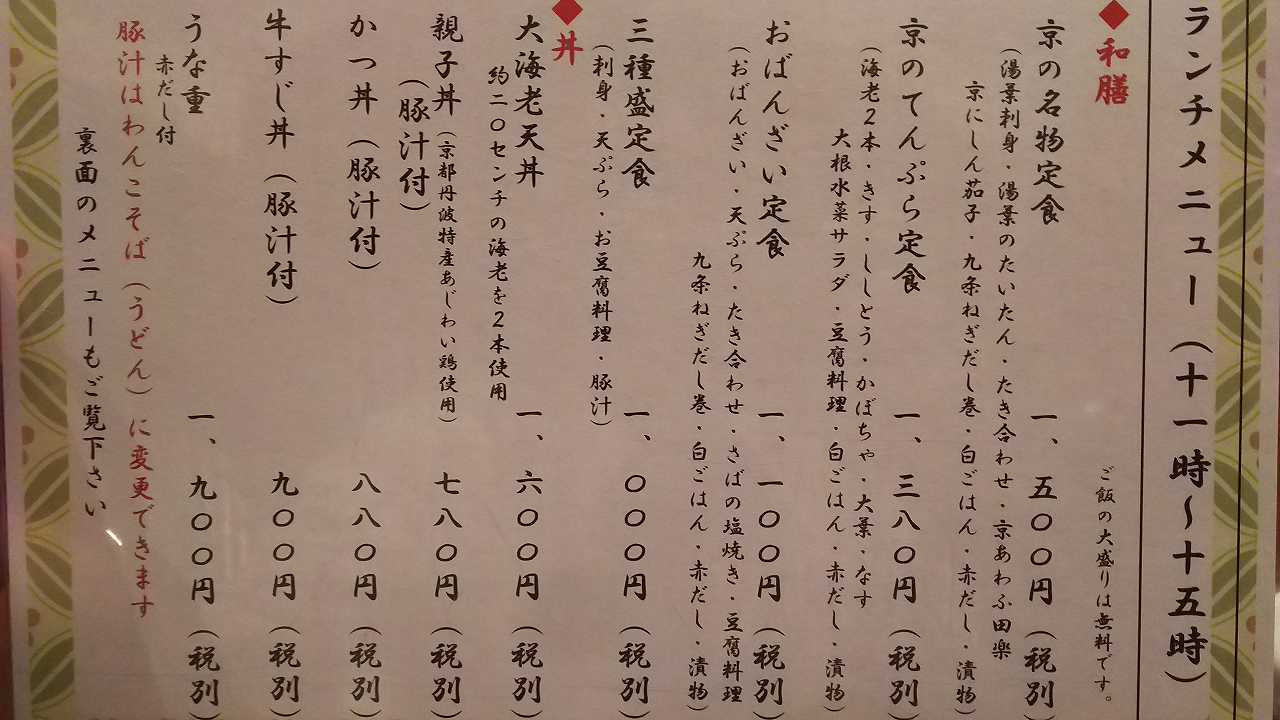 ランチメニュー（十一時～十五時）
◆和膳
ご飯の大盛りは無料です。
京の名物定食 一、五〇〇円（税別）
（湯葉刺身・湯葉のたいたん・たき合わせ・京あわふ田楽
京にしん茄子・九条ねぎだし巻・白ごはん・赤だし・漬物）
京のてんぷら定食 一、三八〇円（税別）
（海老2本・きす・ししとう・かぼちゃ・大葉・なす
大根水菜サラダ・豆腐料理・白ごはん・赤だし・漬物）
おばんざい定食 一、一〇〇円（税別）
（おばんざい・天ぷら・たき合わせ・さばの塩焼き・豆腐料理
九条ねぎだし巻・白ごはん・赤だし・漬物）
三種盛定食 一、〇〇〇円（税別）
（刺身・天ぷら・お豆腐料理・豚汁）
◆丼
大海老天丼 一、六〇〇円（税別）
約二〇センチの海老を2本使用
親子丼（京都丹波特産あじわい鶏使用） 七八〇円（税別）
（豚汁付）
かつ丼（豚汁付） 八八〇円（税別）
牛すじ丼（豚汁付） 九〇〇円（税別）
うな重 一、九〇〇円（税別）
赤だし付
豚汁はわんこそば（うどん）に変更できます
裏面のメニューもご覧下さい